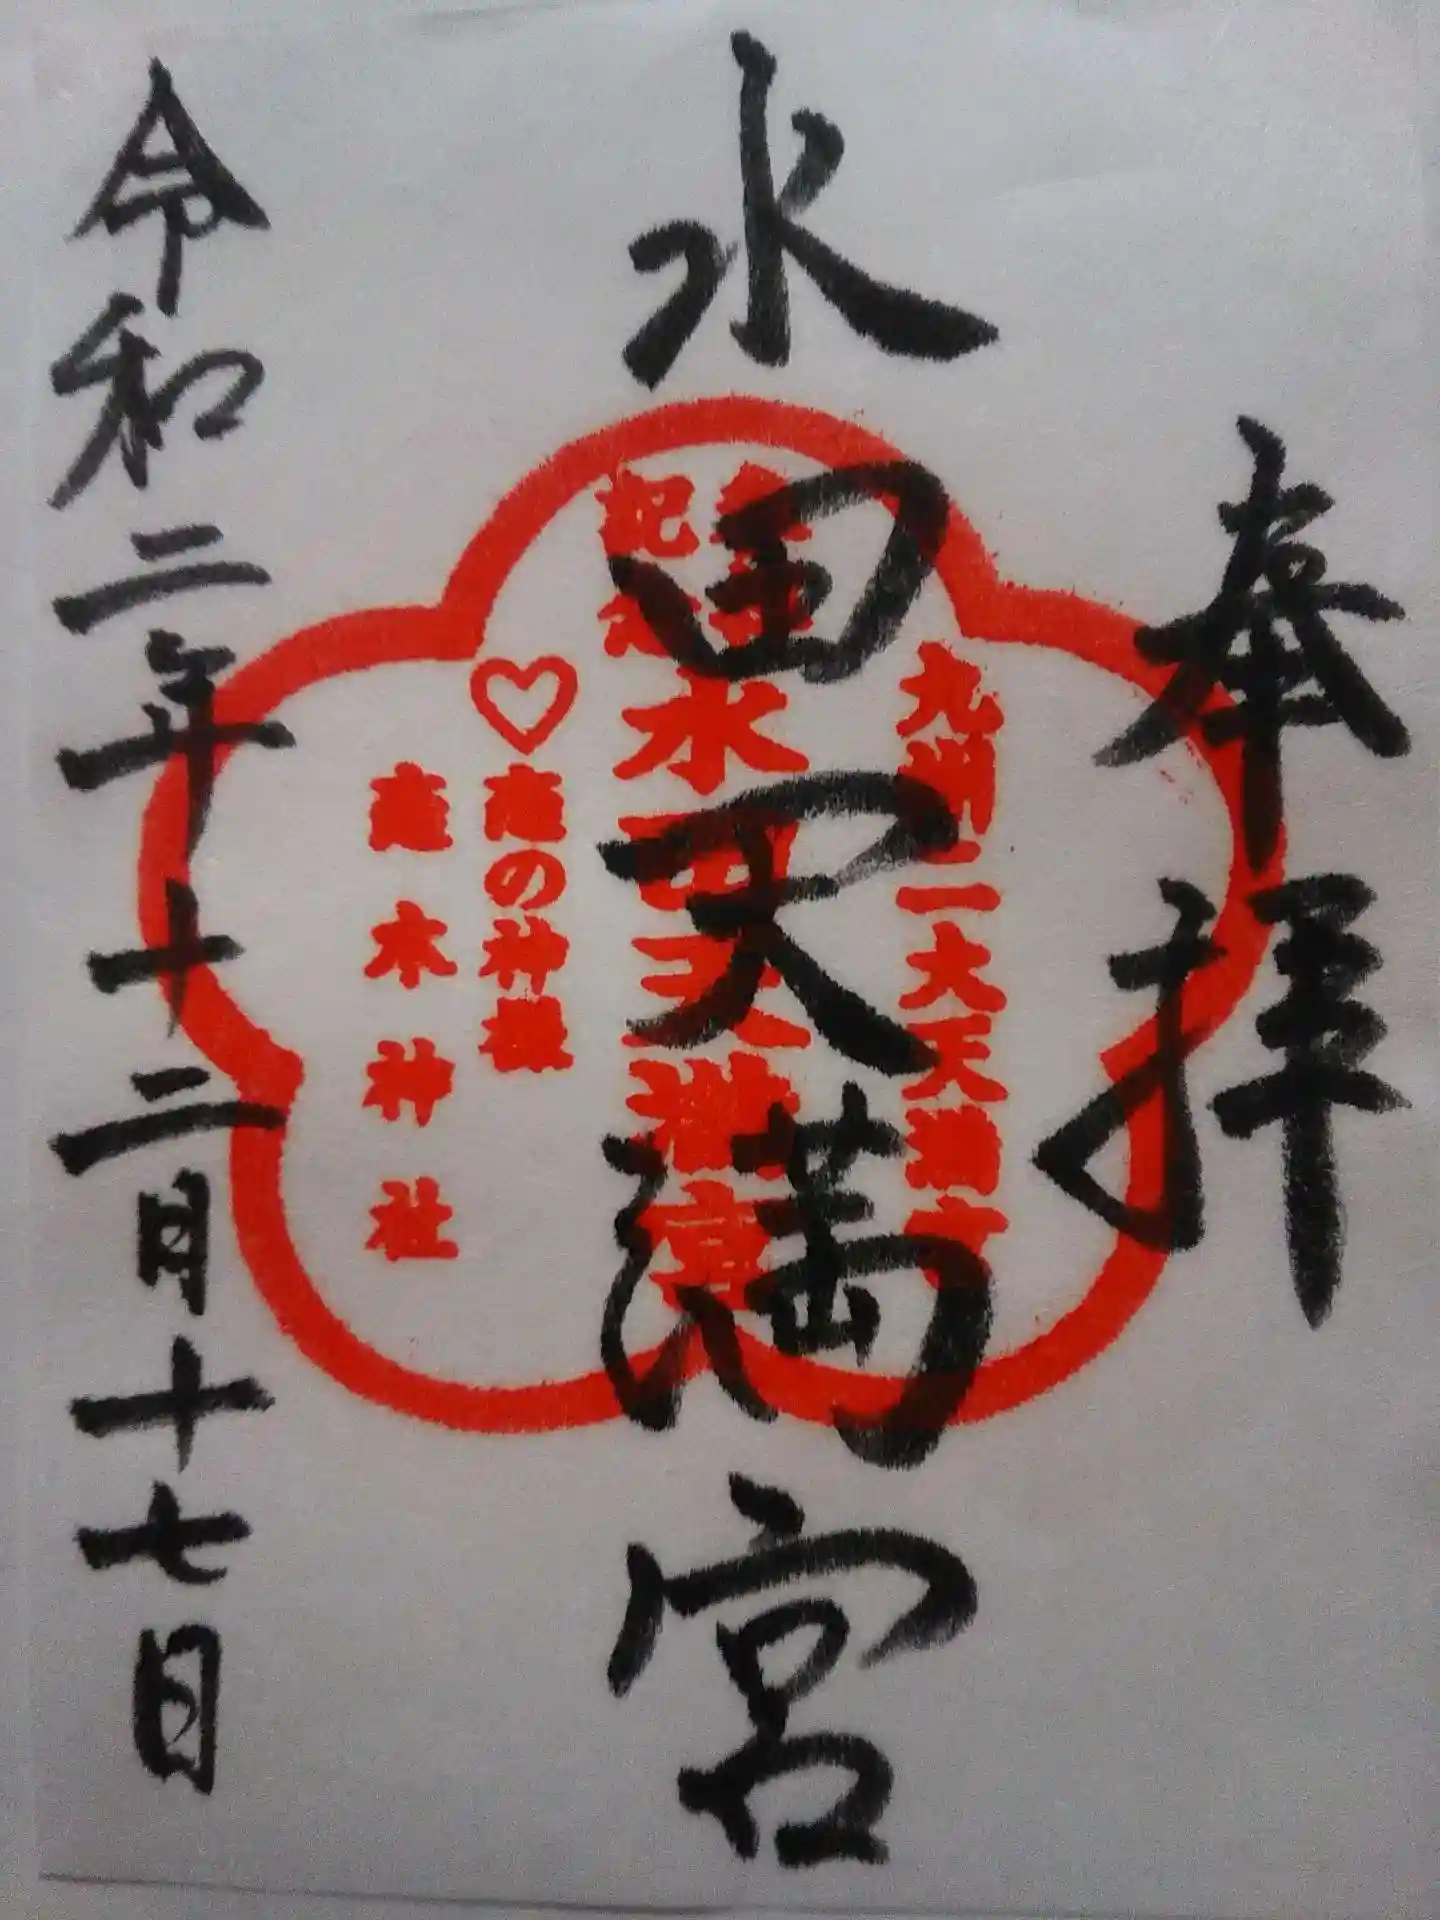 奉拝
九州二大天満宮
水田天満宮
参拝
記念
水田天満宮
♡恋の神様
恋木神社
令和二年十二月十七日